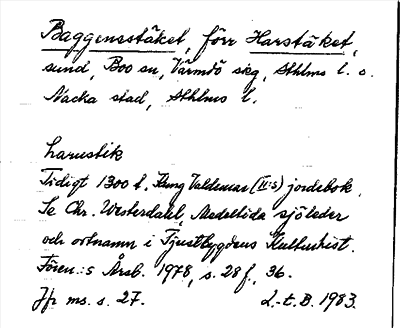 Baggensstäket, förr Harstäket,
sund, Boo sn, Värmdö skg, Sthlms l. o.
Nacka stad, Sthlms l.
harustik
Tidigt 1300 t. Kung Valdemar (II:s) jordebok
Se Chr. Westerdahl, Medeltida sjöleder
och ortnamn i Tjustbygdens Kulturhist.
Fören:s Årsb. 1978, s. 28 f., 36.
Jfr ms. s. 27. L.-t. B. 1983.